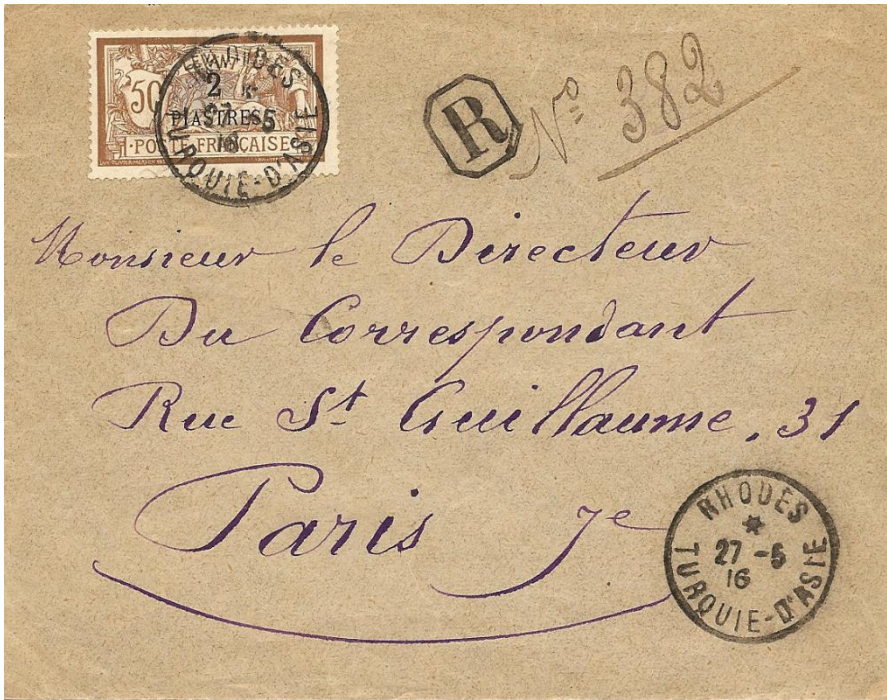 50
2
PIASTRES
POSTE FRANÇAISE
RHODES
27 -5
16
TURQUIE-D'ASIE
R
No 382
Monsieur le Directeur
Du Correspondant
Rue St Guillaume, 31
Paris 7e
RHODES
27 -5
16
TURQUIE-D'ASIE